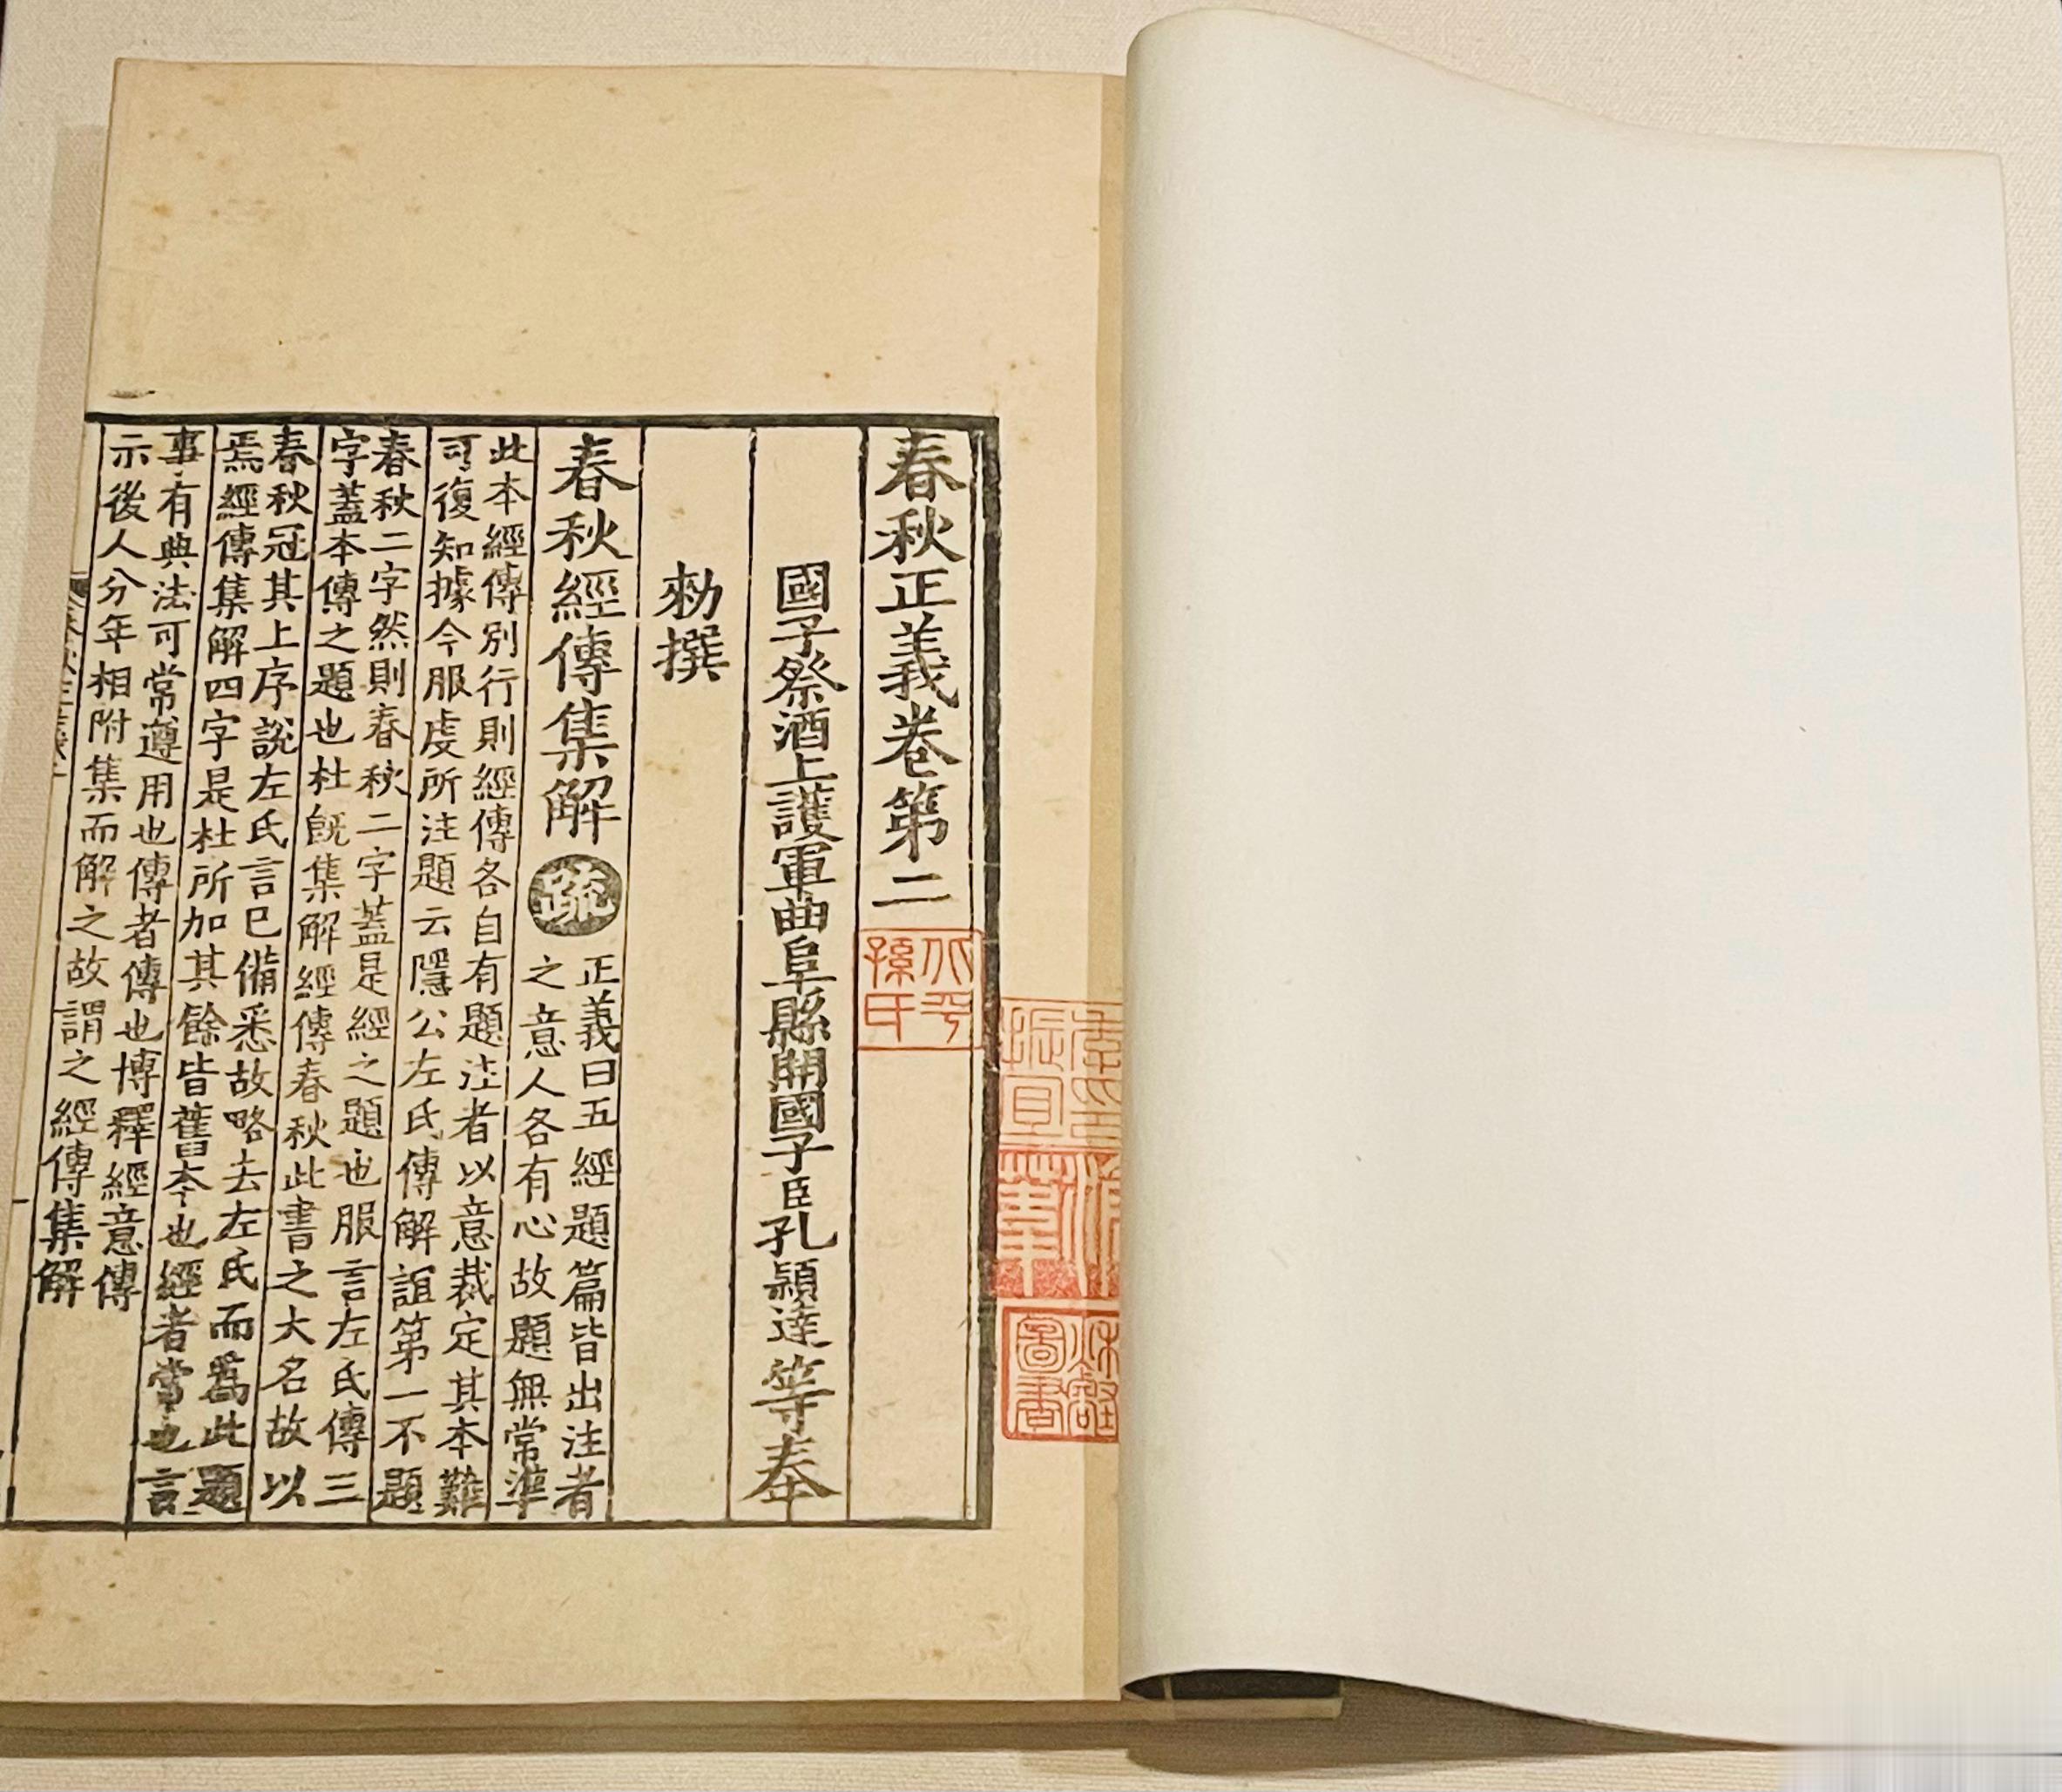 春秋正義卷第二
國子祭酒上護軍曲阜縣開國子臣孔穎達等奉
勑撰
春秋經傳集解 疏 正義曰五經題篇皆出注者
之意人各有心故題無常準
此本經傳別行則經傳各自有題注者以意裁定其本難
可復知據今服虔所注題云隱公左氏傳解誼第一不題
春秋二字然則春秋二字蓋是經之題也服言左氏傳三
字蓋本傳之題也杜既集解經傳春秋此書之大名故以
春秋冠其上序說左氏言已備悉故略去左氏而爲此題
焉經傳集解四字是杜所加其餘皆舊本也經者常也言
事有典法可常遵用也傳者傳也博釋經意傳
示後人分年相附集而解之故謂之經傳集解
孫氏
圖書